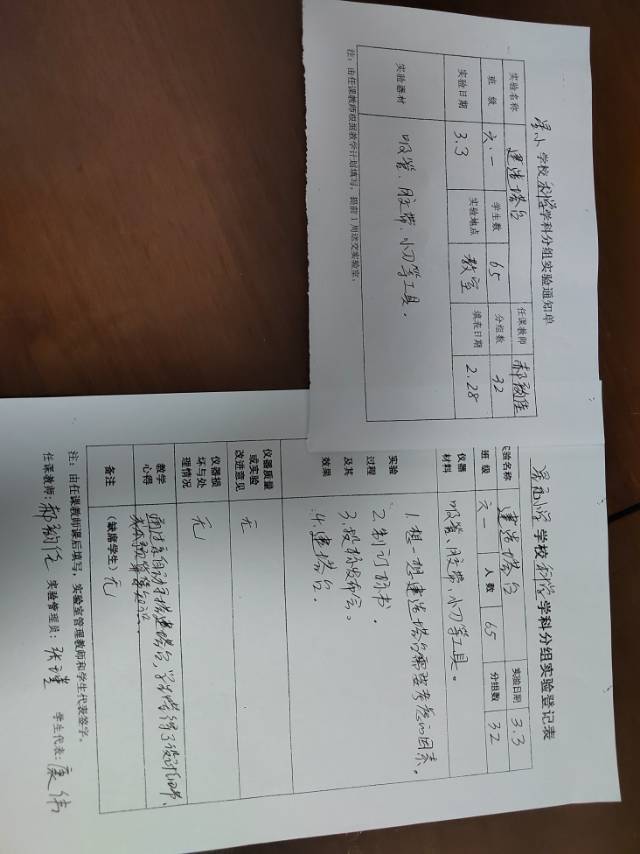 小学校科学学科分组实验通知单
实验名称 建造塔台 任课教师
班级 六.一 学生数 65 分组数 32
实验日期 3.3 实验地点 教室 填表日期 2.28
实验器材 吸管、胶带、小刀等工具。
注:由任课教师根据教学计划填写,提前1周送交实验室。
学校科学学科分组实验登记表
实验名称 建造塔台 实验日期 3.3
班级 六一 人数 65 分组数 32
仪器材料 吸管、胶带、小刀等工具。
实验过程及其效果 1.想一想建造塔台需要考虑的因素。
2.制订标书.
3.投标发布会。
4.建塔台.
仪器质量或实验改进意见 无
仪器损坏与处理情况 无
教学心得 通过亲自动手搭建塔台,学生懂得了设计
备注 (缺席学生)无
注:由任课教师课后填写,实验室管理教师和学生代表签字。
任课教师: 实验管理员: 张 学生代表: